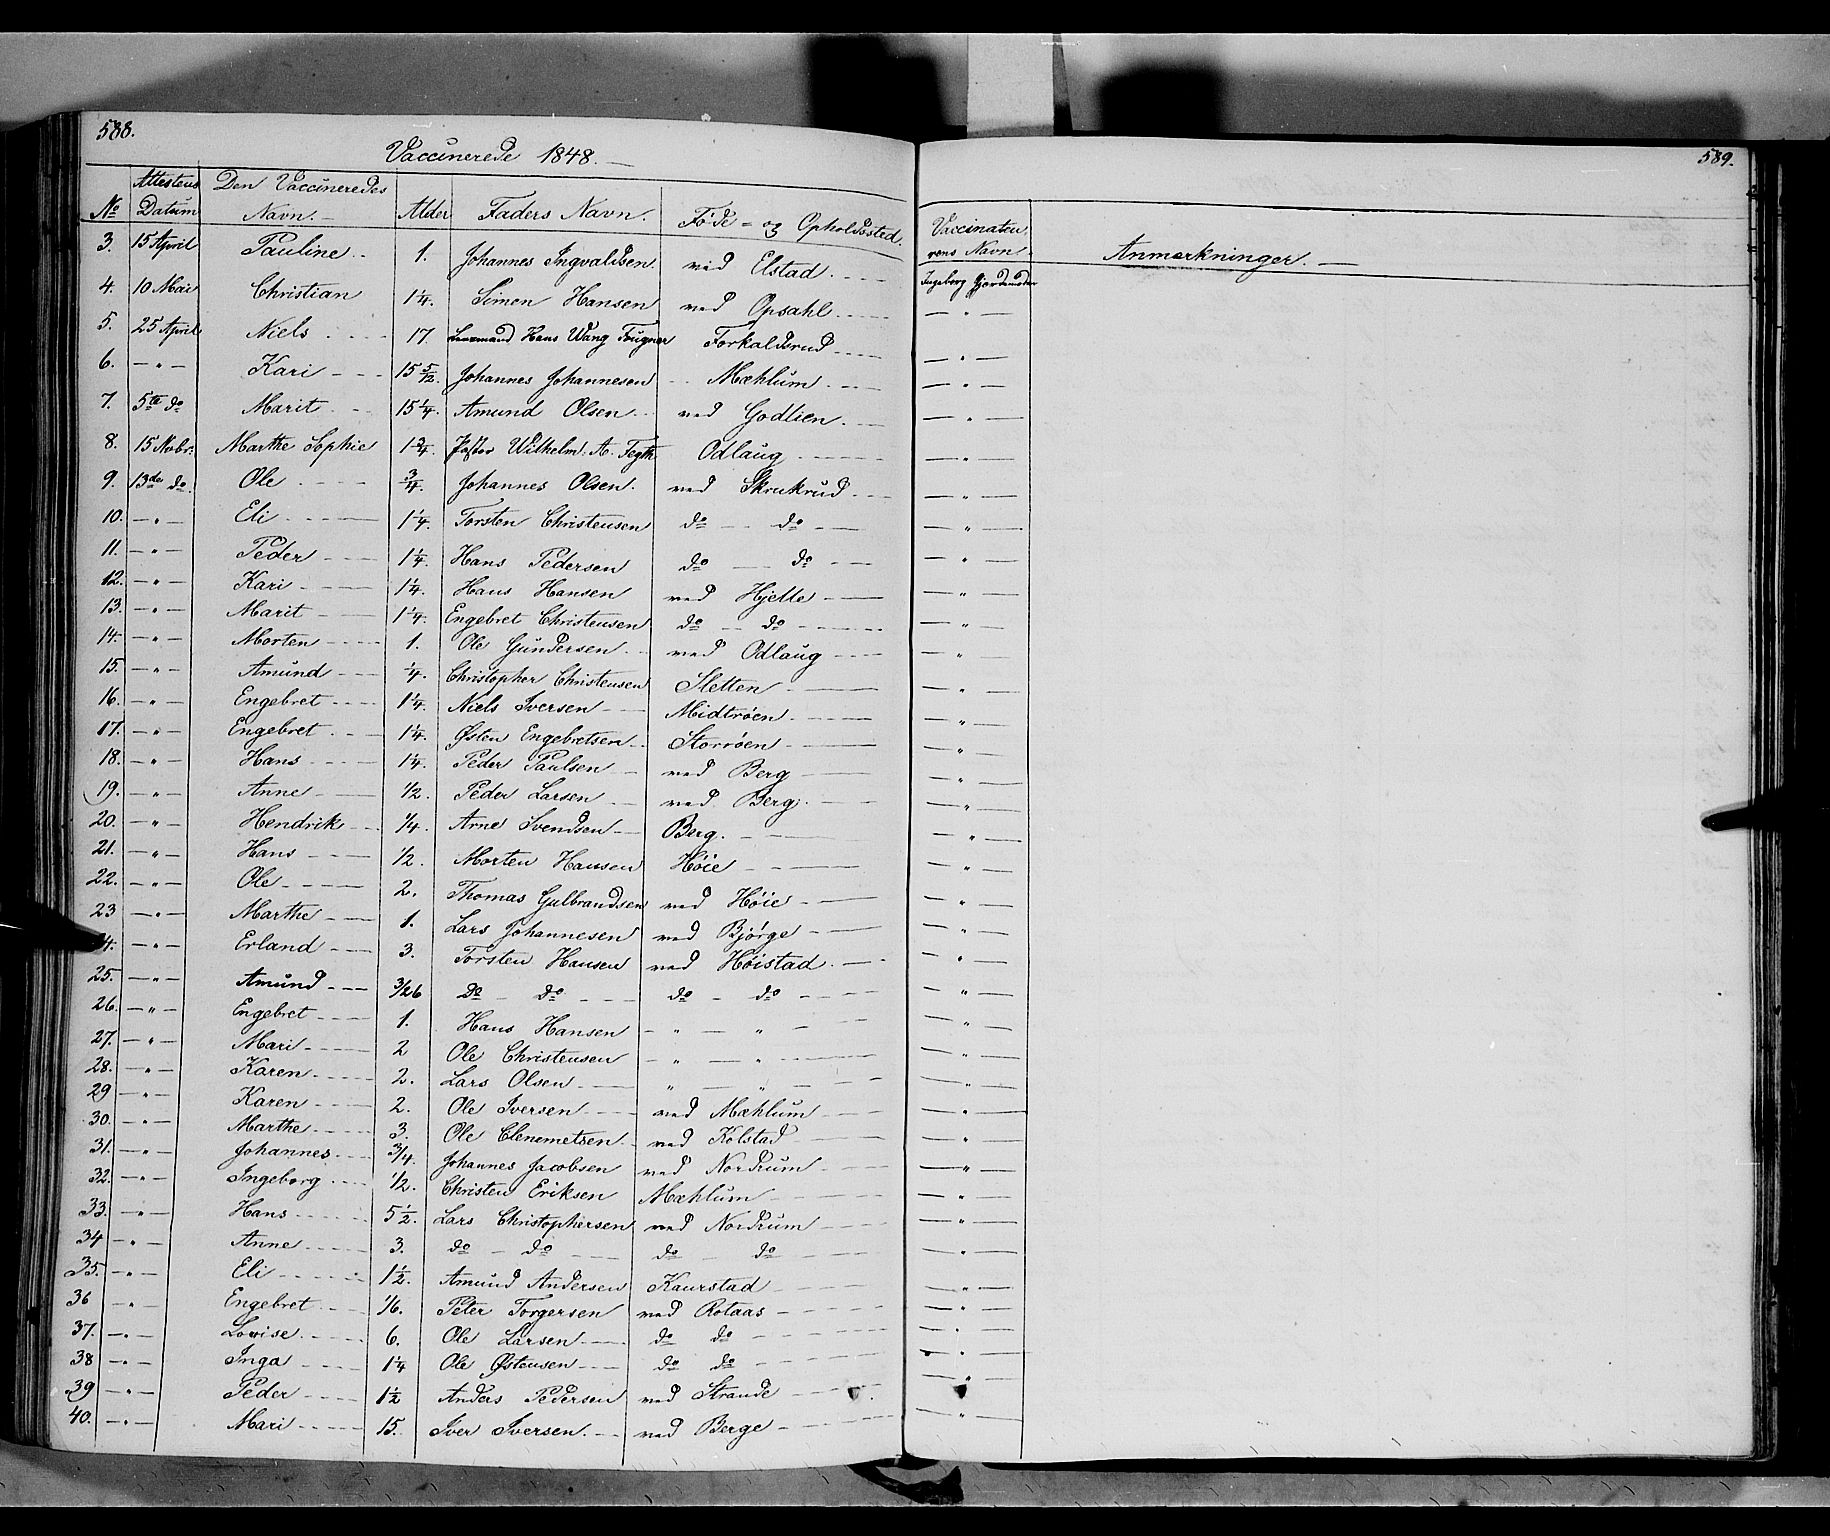 588.
Vaccinerede 1848.
No Attestens Datum Den Vaccineredes Navn. Alder Faders Navn. Føde- og Opholdssted.
3. 15 April Pauline 1. Johannes Ingvaldsen ved Elstad
4. 10 Mai Christian 1 1/4. Simen Hansen ved Opsahl
5. 25 April Niels 17 Lensmand Hans Wang Fougner Forkaldsrud
6. - " - Kari 15 5/12. Johannes Johannesen Mæhlum
7. 5te do Marit 15 1/4. Amund Olsen ved Godlien
8. 15 Novbr. Marthe Sophie 1 3/4. Pastor Wilhelm A. Odlaug
9. 13de do. Ole 3/4. Johannes Olsen. ved Skrukrud
10. - " - Eli 1 1/4. Torsten Christensen do do
11. - " - Peder 1 1/4. Hans Pedersen do do
12. - " - Kari 1 1/4. Hans Hansen ved Hjelle
13. - " - Marit 1 1/4. Engebret Christensen do do
14. - " - Morten 1. Ole Gundersen ved Odlaug
15. - " - Amund 1/4. Christopher Christensen Sletten
16. - " - Engebret 1 1/4. Niels Iversen Midtrøen
17. - " - Engebret 1 1/4. Østen Engebretsen Storrøen
18. - " - Hans 1 1/4. Peder Paulsen ved Berg
19. - " - Anne 1/2. Peder Larsen ved Berg
20. - " - Hendrik 1/4. Arne Svendsen Berg.
21. - " - Hans 1/2. Morten Hansen Høie
22. - " - Ole 2. Thomas Gulbrandsen ved Høie
23 - " - Marthe 1. Lars Johannesen ved Bjørge
4. - " - Erland 3. Torsten Hansen ved Høistad
25. - " - Amund 3/26 Do do do do
26. - " - Engebret 1. Hans Hansen - " - " -
27. - " - Mari 2 Ole Christensen - " - " -
28. - " - Karen 2. Lars Olsen " - " -
29 - " - Karen 2. Ole Iversen ved Mæhlum
30. - " - Marthe 3. Ole Clenemetsen ved Kolstad
31. - " - Johannes 3/4. Johannes Jacobsen ved Nordrum
32. - " - Ingeborg 1/2. Christen Eriksen Mæhlum
33. - " - Hans 5 1/2. Lars Christophersen ved Nordrum
34 - " - Anne 3. do do do do
35. - " - Eli 1 1/2. Amund Andersen Kaurstad
36 - " - Engebret 1/6. Peter Torgersen ved Rotaas
37. - " - Lovise 6. Ole Larsen do do
38 - " - Inga 1 1/4 Ole Østensen do do
39 - " - Peder 1 1/2 Anders Pedersen ved Strande
40. - " - Mari 15. Iver Iversen ved Berge
589.
Vaccinateurens Navn Anmærkninger.
Ingeborg